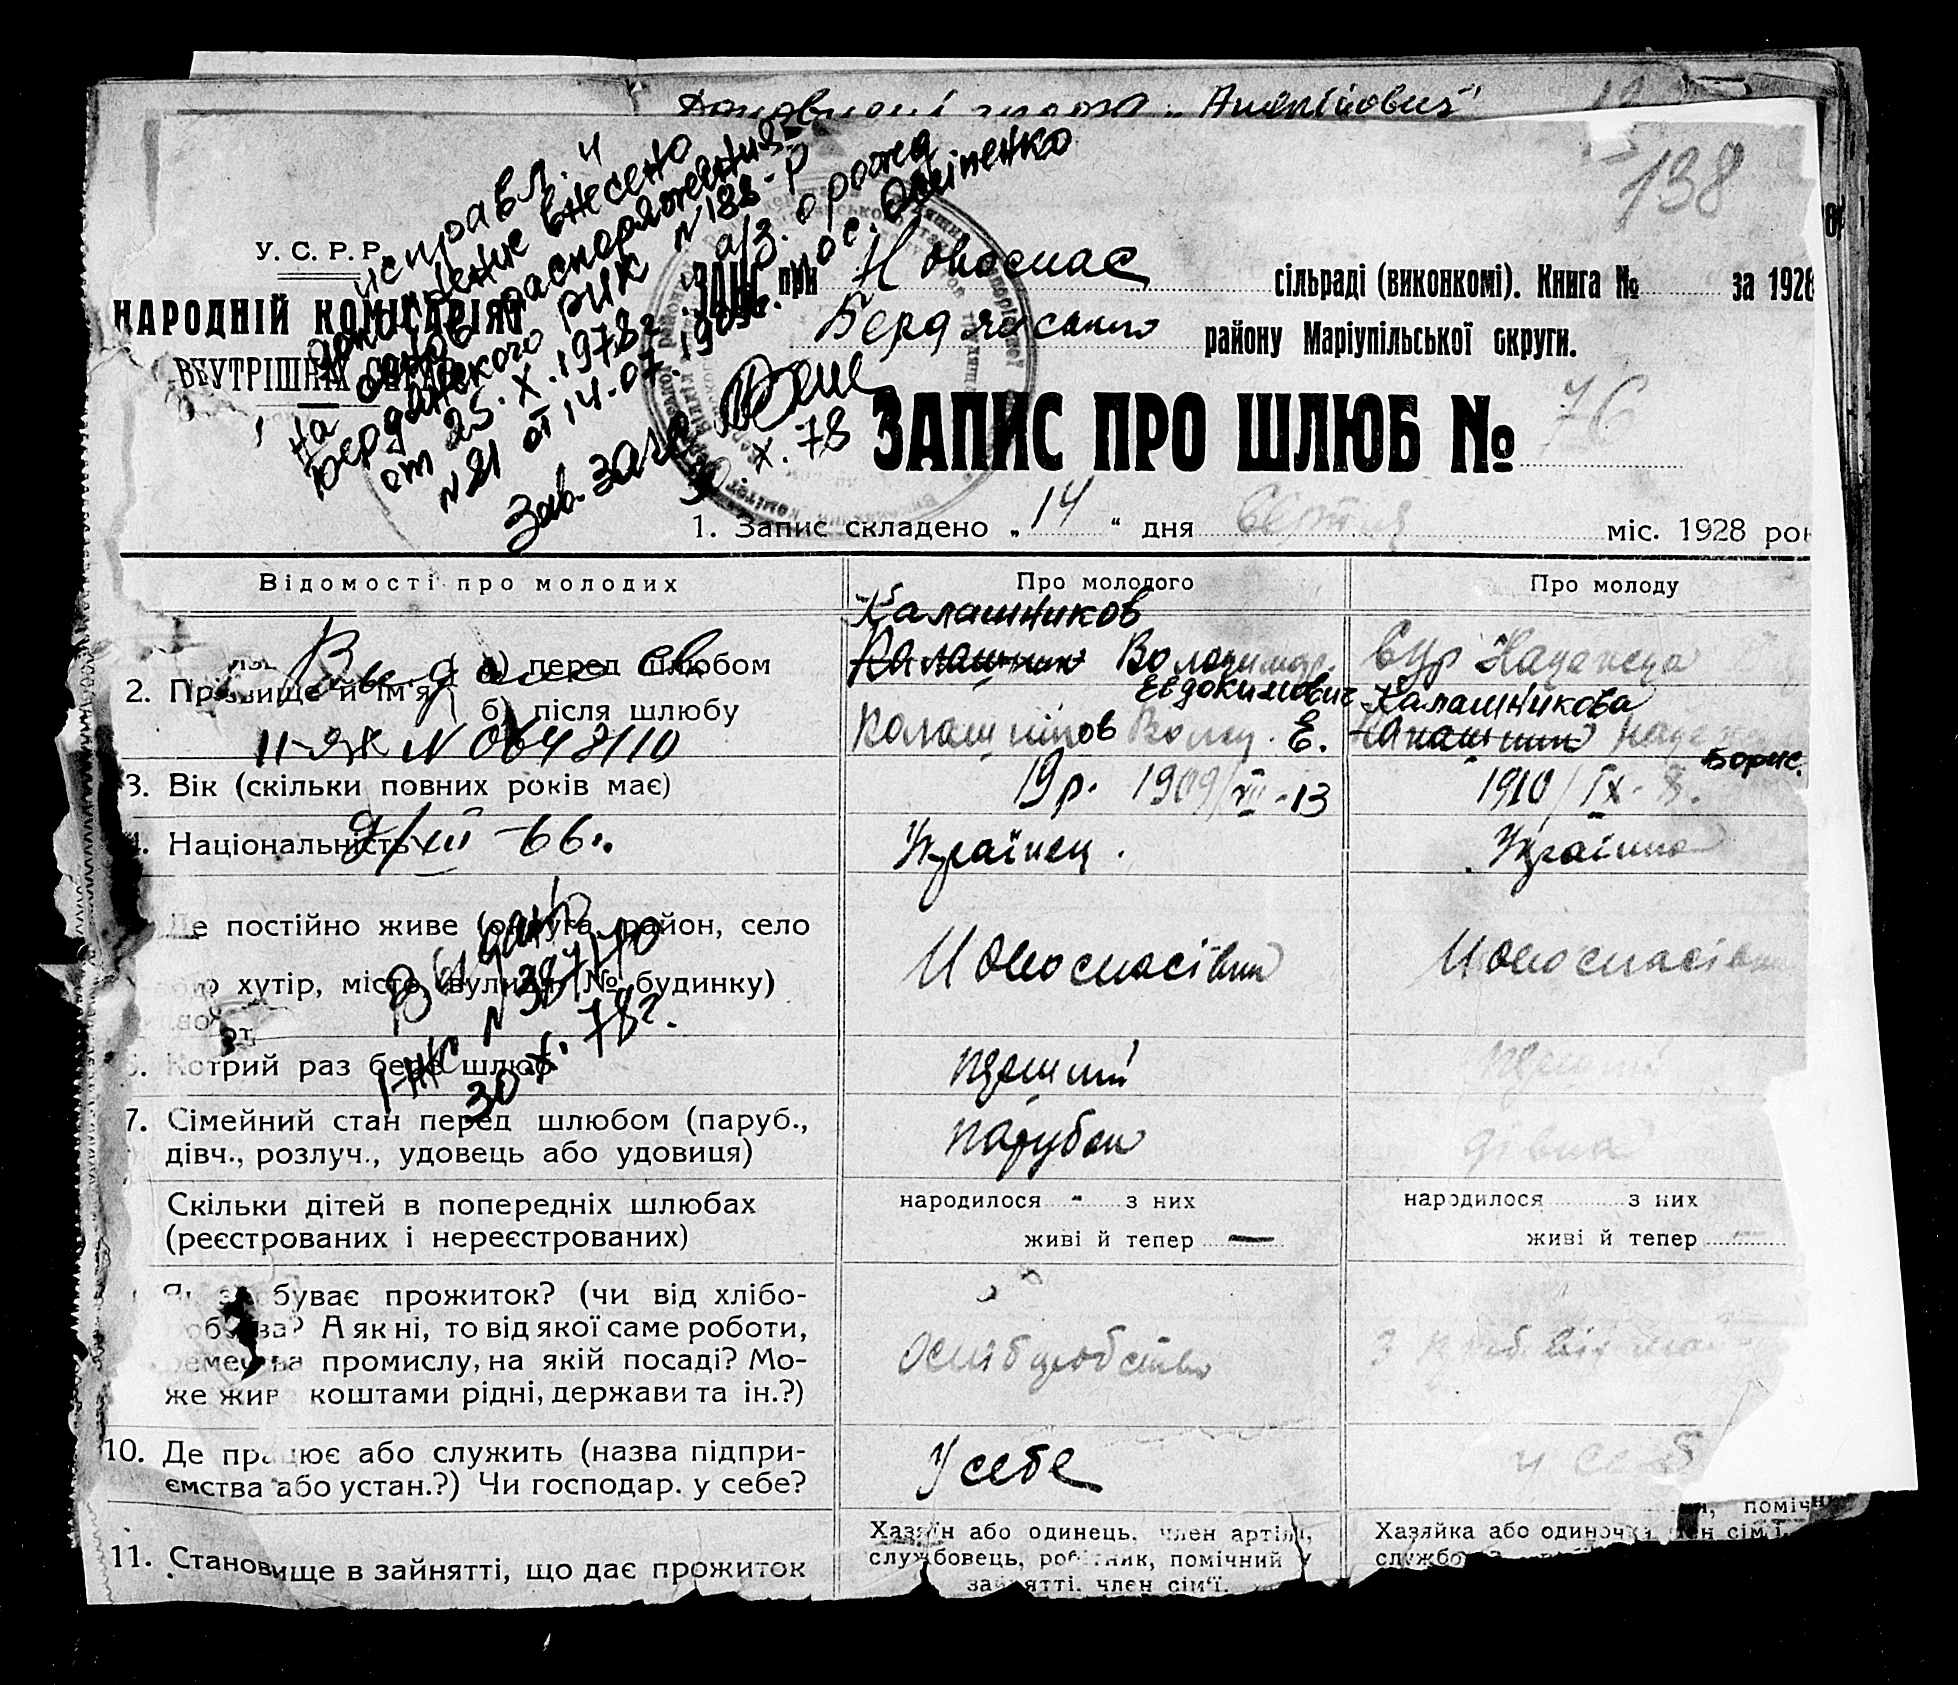 138
исправл. и
дополнение внесено
на основ. распоряжения
Бердянского РИК N 188-р
от 25.X.1978г. и а/з. о рожд
N 21 от 14.07.1909г. пос. Осипенко
Зав. Загс
30.X.78
У. С. Р. Р.
НАРОДНІЙ КОМІСАРІЯТ
ВНУТРІШНІХ СПРАВ
ЗАЦС при Новоспас сільраді (виконкомі). Книга № за 1928
Бердянського району Маріупільської округи.
ЗАПИС ПРО ШЛЮБ № 76
1. Запис складено „14“ дня серпня міс. 1928 рок
Відомості про молодих Про молодого Про молоду
Калашников
2. Прізвище й ім'я а) перед шлюбом Калашник Володимир. Бур Надежда
Евдокимович Калашникова
б) після шлюбу Калашніков Волод. Е. Калашник Надежд
Борис.
II-ЯЖ N 0648110
3. Вік (скільки повних років має) 19р. 1909/VII-13 1910/IX-8.
4. Національність Українец. Українка
9/XII-66г.
Де постійно живе (округа, район, село Новоспасівка Новоспасівка
або хутір, місто, вулиця, № будинку)
Выдано
I-ЖС N 387170
30.X.78г.
6. Котрий раз бере шлюб перший перший
7. Сімейний стан перед шлюбом (паруб., парубок дівка
дівч., розлуч., удовець або удовиця)
Скільки дітей в попередніх шлюбах народилося - з них народилося з них
(реєстрованих і нереєстрованих) живі й тепер — живі й тепер —
Як здобуває прожиток? (чи від хлібо-
робства? А як ні, то від якої саме роботи,
ремества промислу, на якій посаді? Мо-
же живе коштами рідні, держави та ін.?)
10. Де працює або служить (назва підпри- У себе у себе
ємства або устан.?) Чи господар. у себе?
11. Становище в зайнятті, що дає прожиток
Хазяїн або одинець, член артілі, Хазяйка або одиночка член сім'ї,
службовець, робітник, помічний у
зайнятті, член сім'ї.